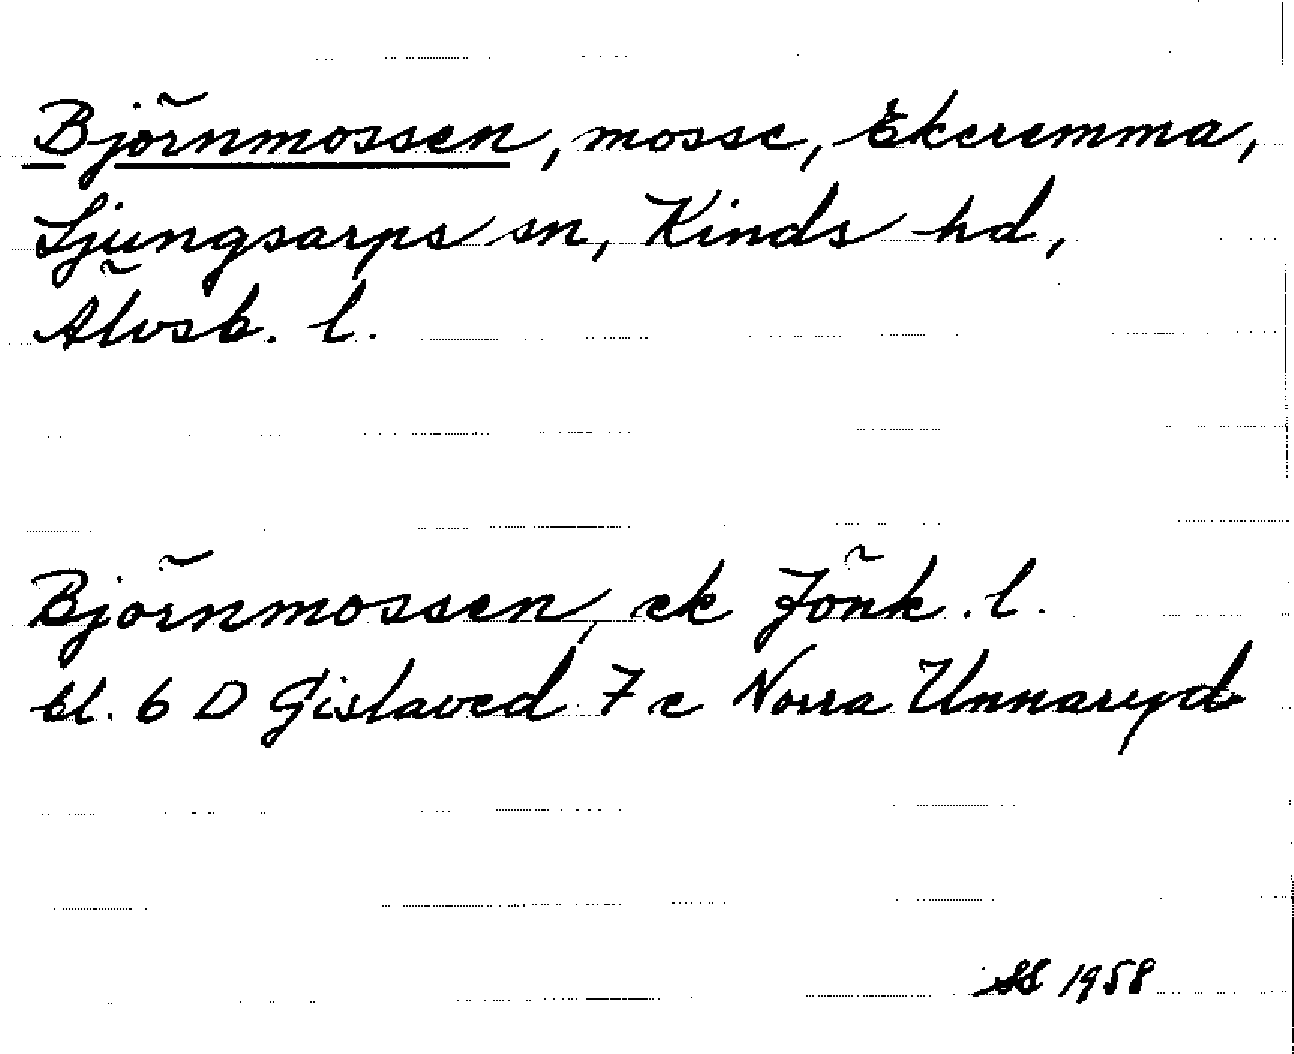 Björnmossen, mosse, Ekeremma,
Ljungsarps sn, Kinds hd,
Älvsb. l.
Björnmossen, ek Jönk. l.
bl. 6 D Gislaved 7 c Norra Unnaryd
SS 1958